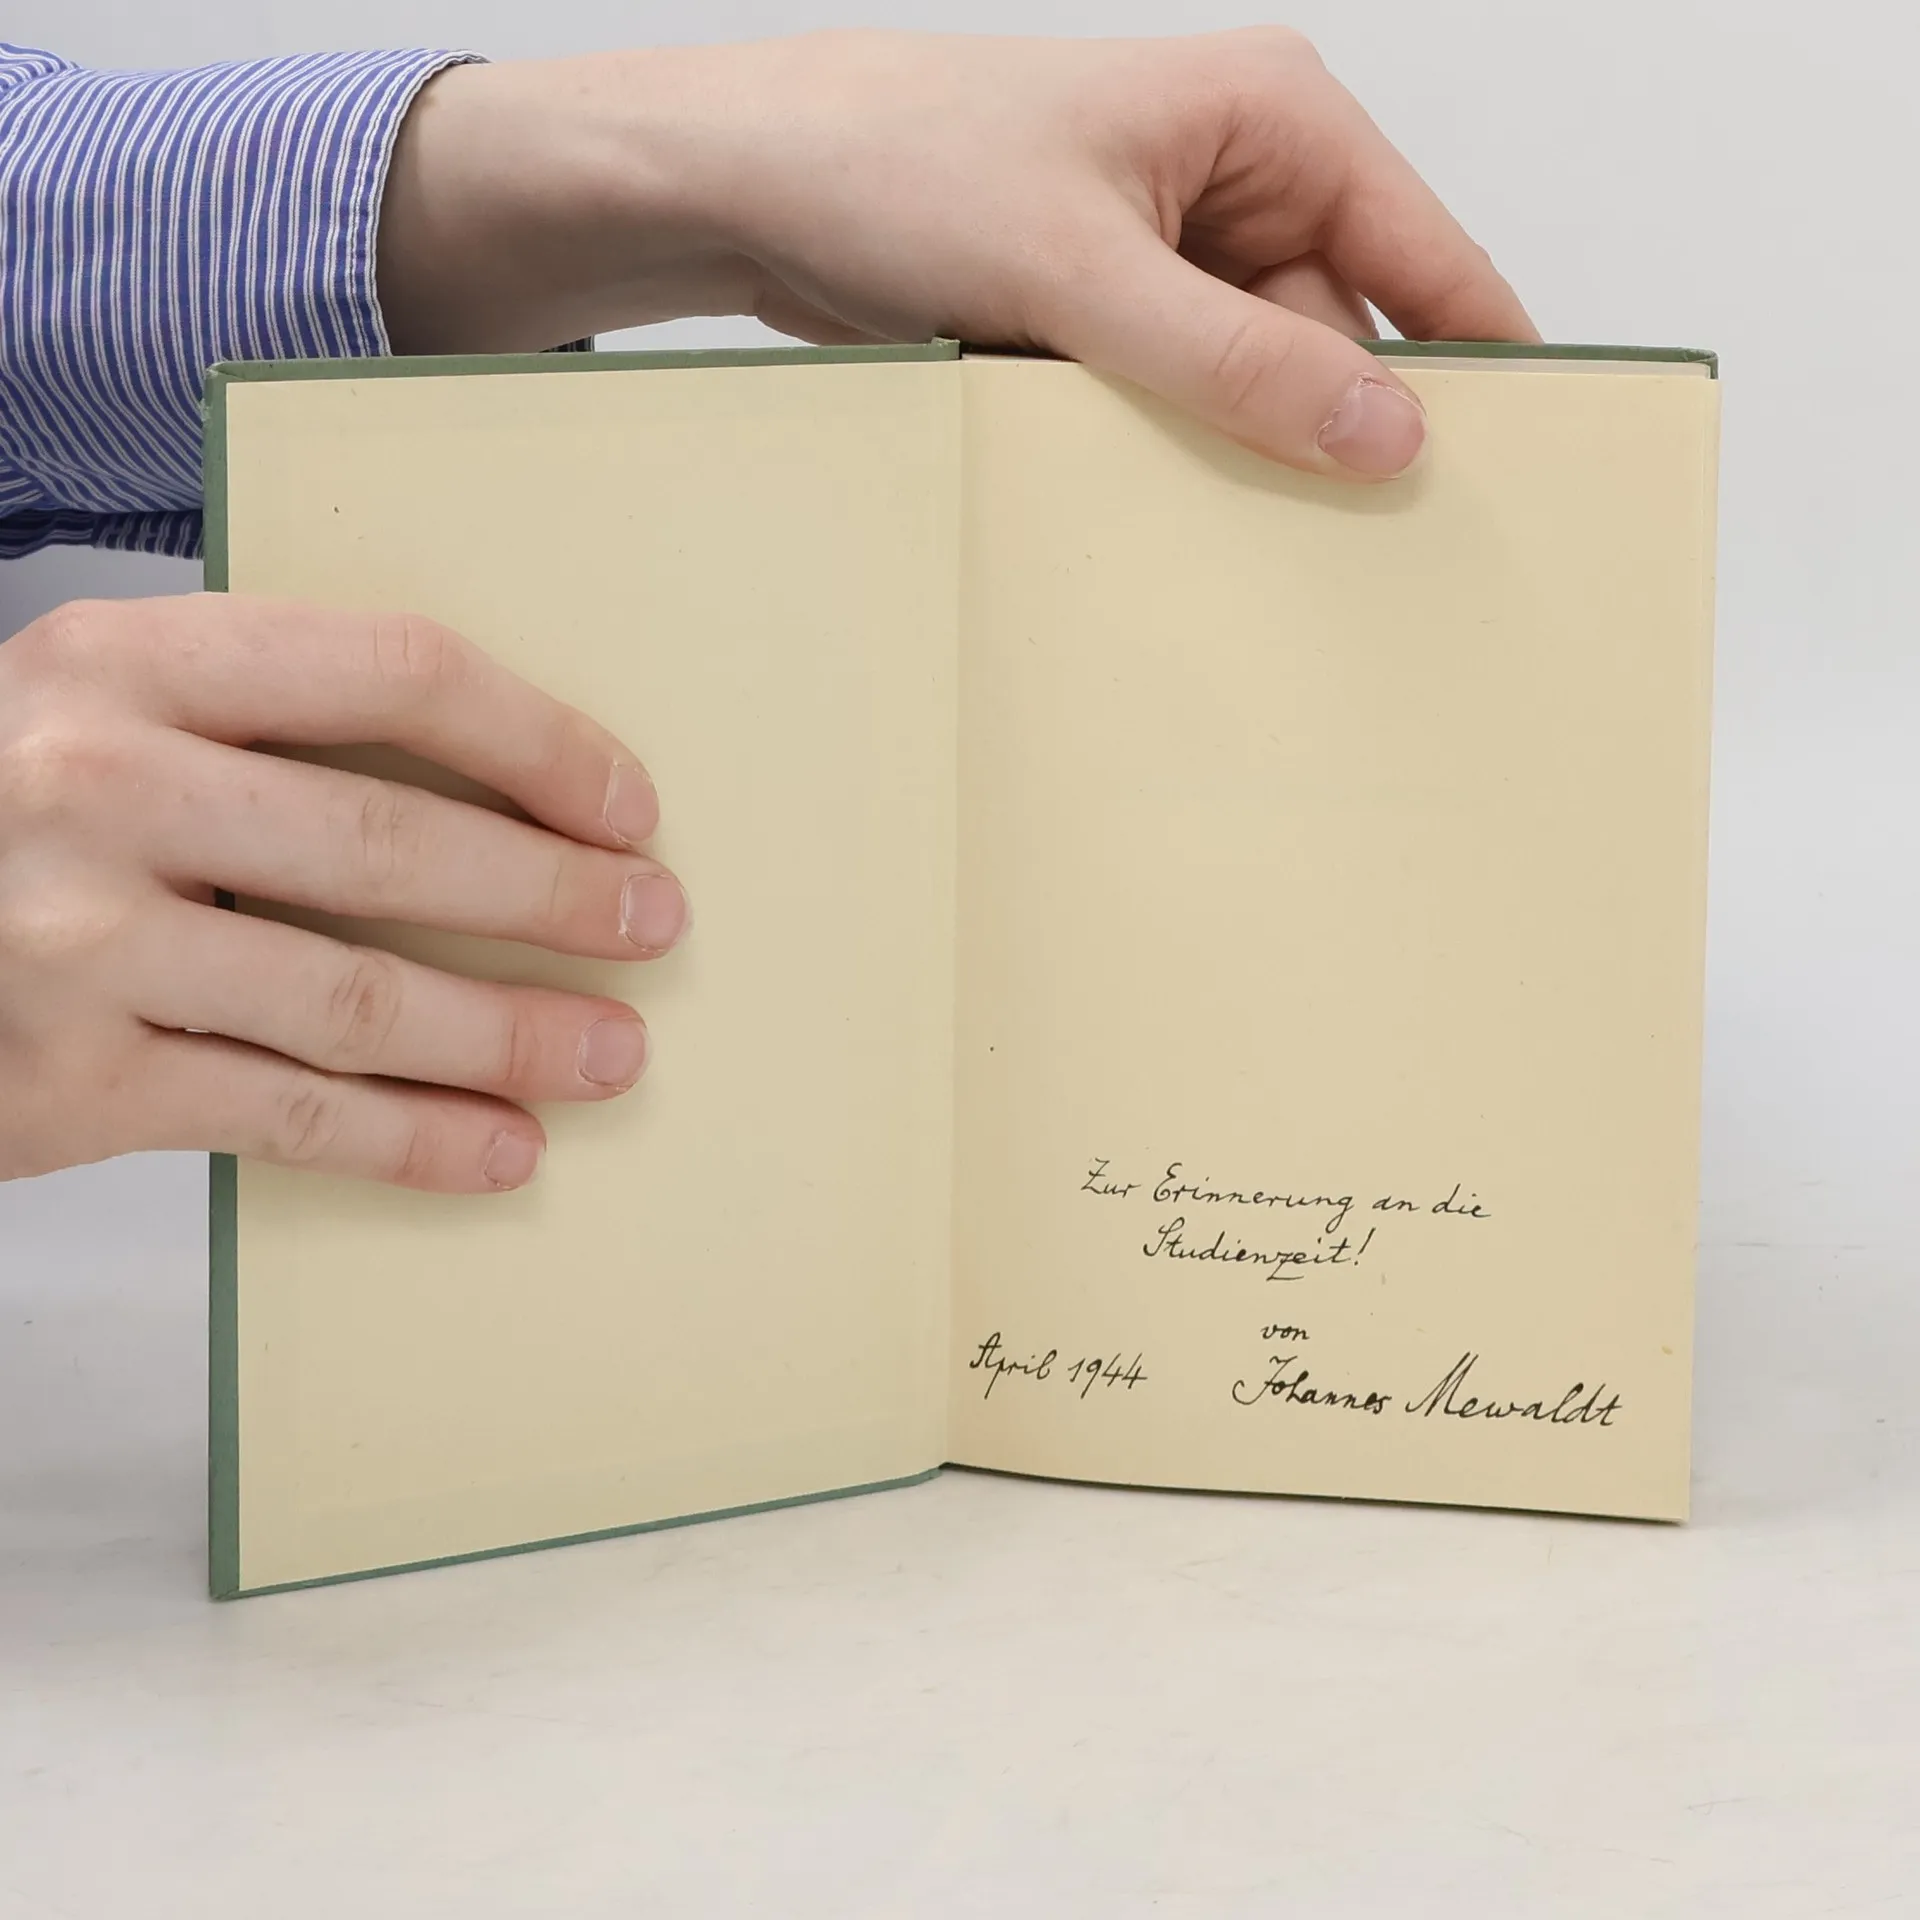 Zur Erinnerung an die
Studienzeit!
von
April 1944 Johannes Mewaldt